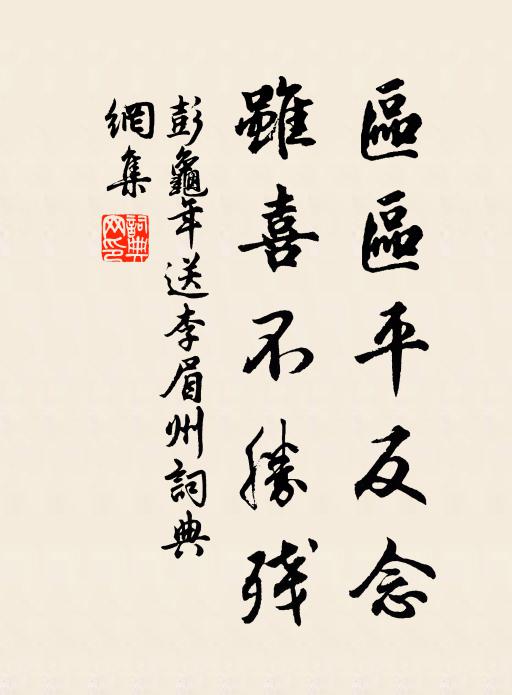 區區平反念
雖喜不勝残
彭龜年送李眉州詞典
網集
詞典網印